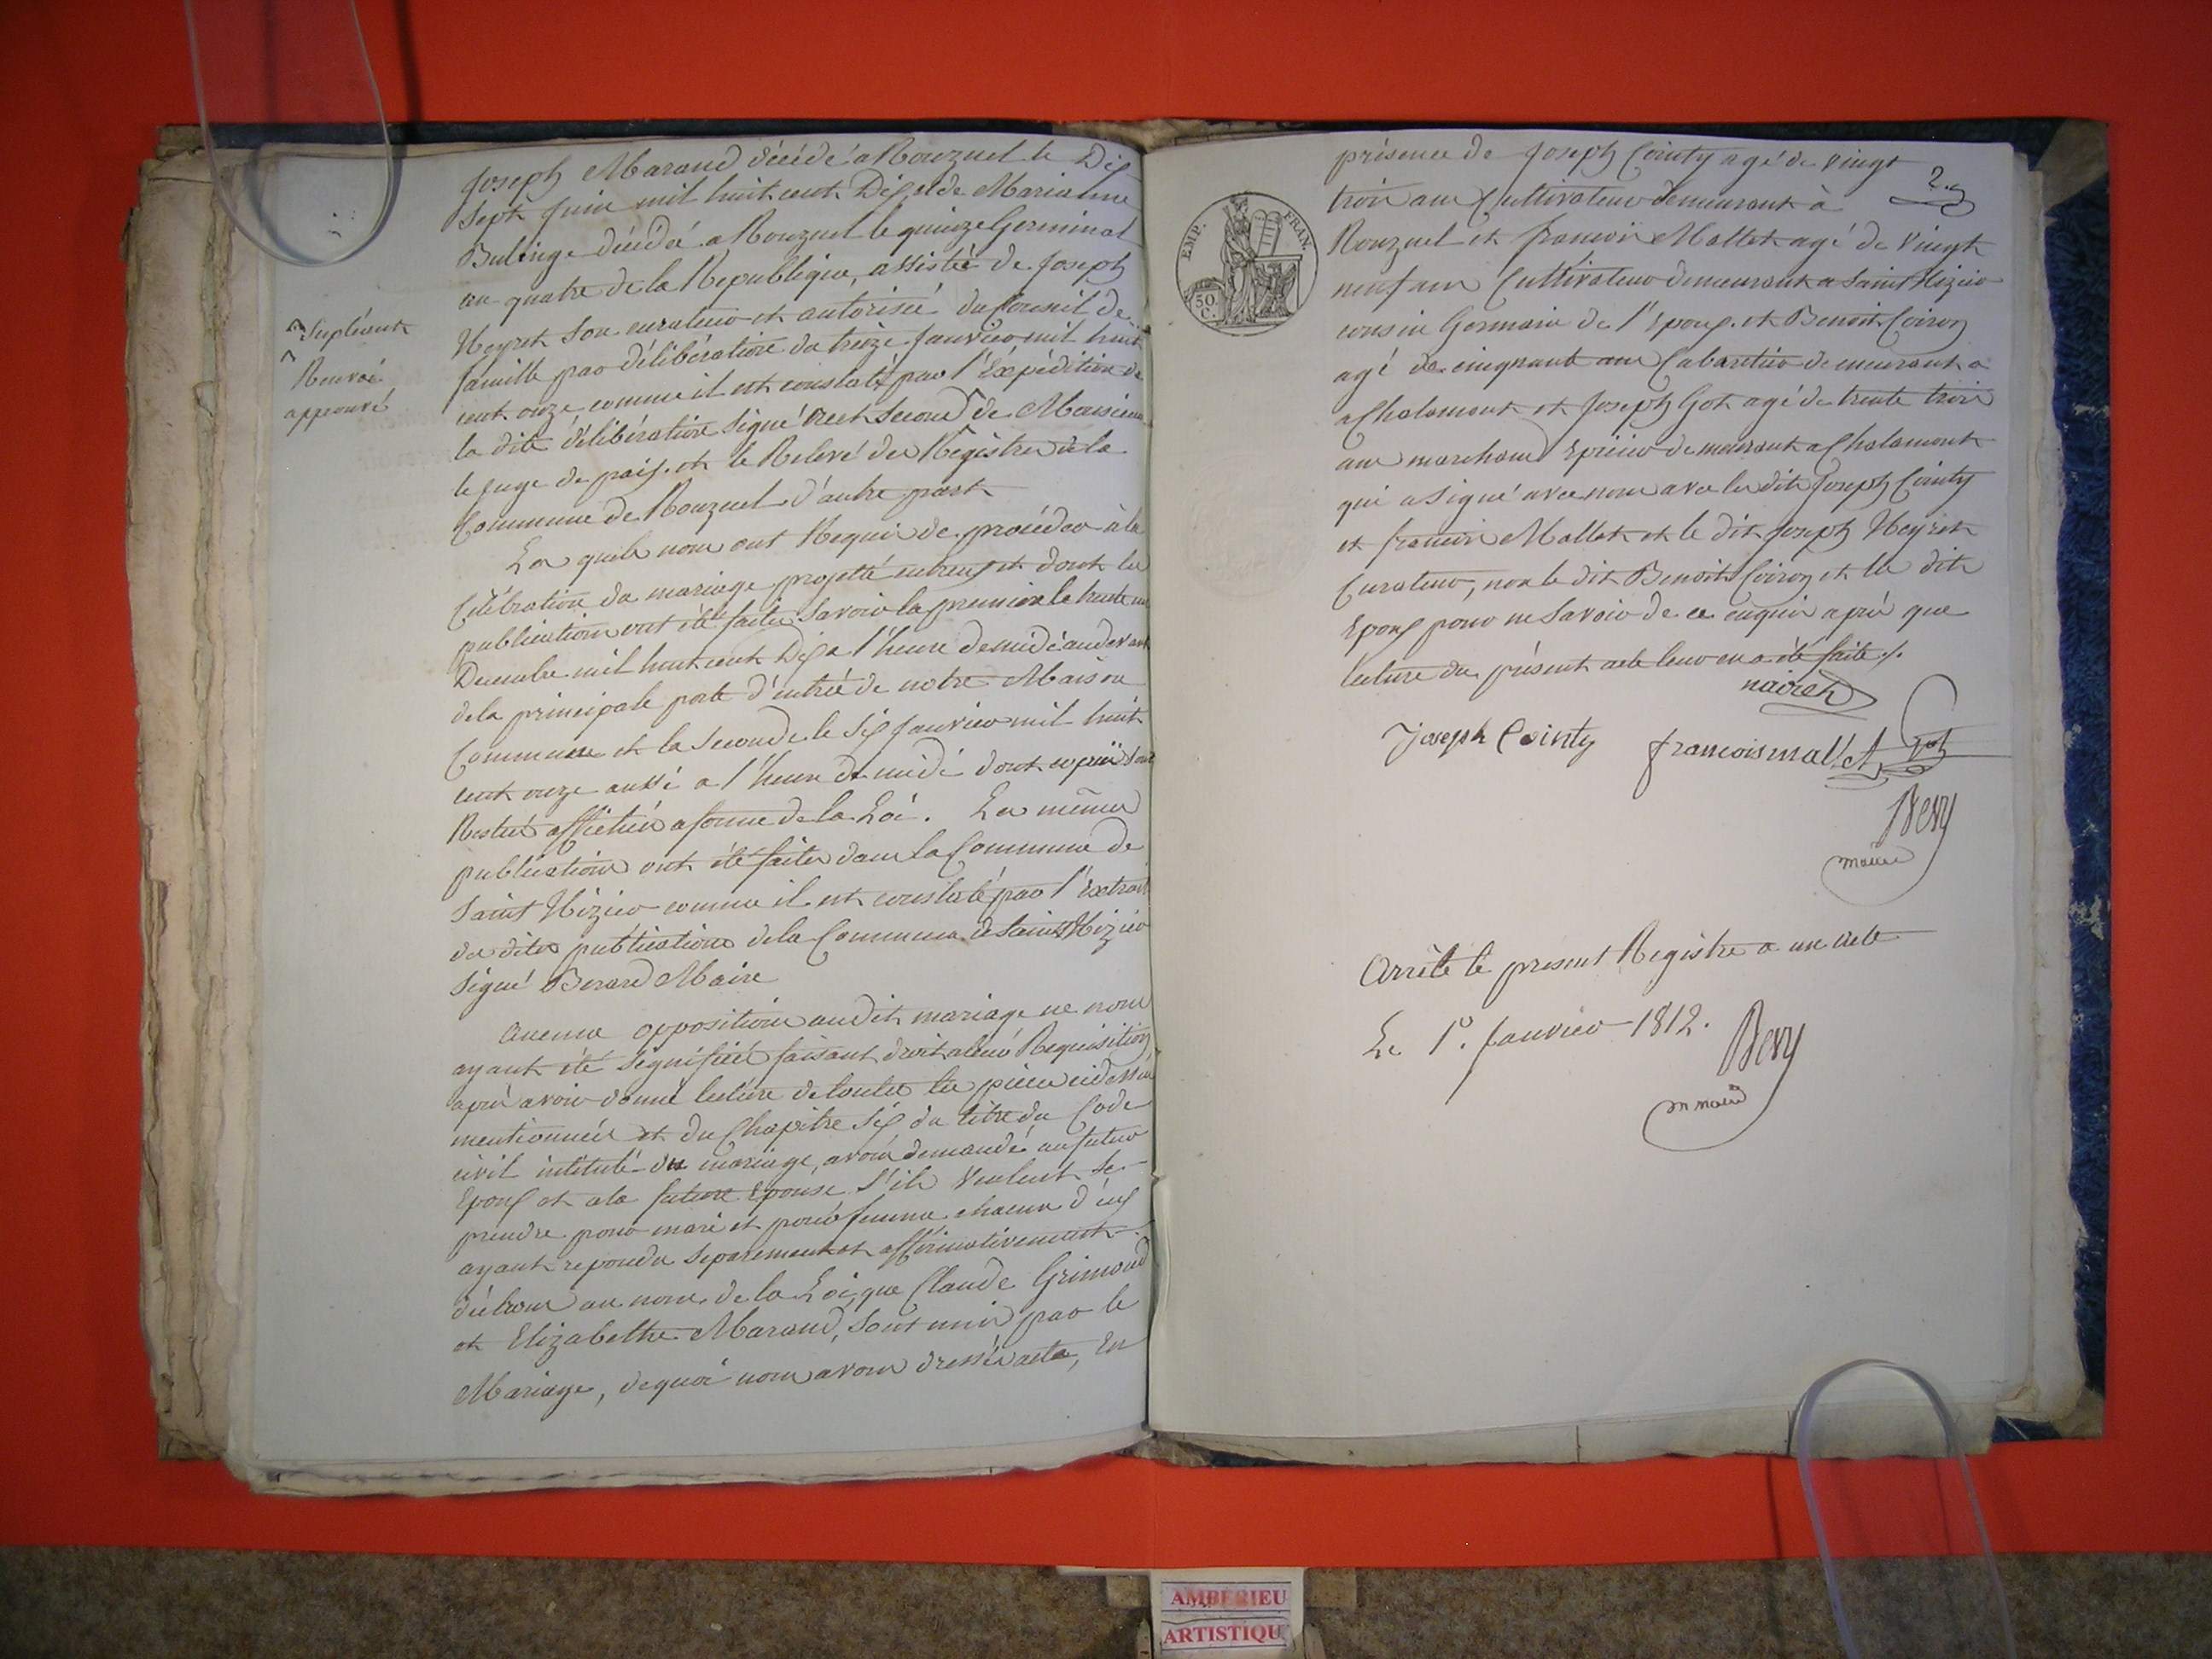 Joseph Maraud décédé a Ronzuel le Dix
sept juin mil huit cent Dix et de Marianne
Bulinge décédé a Ronzuel le quinze Germinal
an quatre de la Republique, assistée de Joseph
Neyret son curateur et autorisée du Conseil de
famille par délibération du treize janvier mil huit
cent onze comme il est constaté par l'Expédition de
la dite délibération signé second de
le juge de paix. et le Relevé des Régistres de la
Commune de Ronzuel d'autre part
^ Supléant
^
Renvoi
approuvé
Les quels nous ont Requis de procéder à la
Célébration du mariage projetté entreux et dont les
publications ont été faites savoir la premiere le trente un
Decembre mil huit cent Dix a l'heure de midi audevant
de la principale porte d'entrée de notre Maison
Commune et la seconde le six janvier mil huit
cent onze aussi a l'heure de midi dont copies sont
Restées affichées a forme de la Loi. Les mêmes
publications ont été faites dans la Commune de
Saint Nizier comme il est constaté par l'Extrait
des dites publications de la Commune de Saint Nizier
signé Berard Maire
Aucune opposition audit mariage ne nous
ayant été signifiée faisant droit aleur Requisition,
après avoir donné lecture de toutes les pieces cidessus
mentionnées et du Chapitre six du titre du Code
civil intitulé du mariage, avons demandé au futur
Epoux et ala future Epouse s'ils veulent se
prendre pour mari et pour femme chacun d'eux
ayant repondu separement et affirmativement
déclarons au nom de la Loi, que Claude Grimoud
et Elizabethe Maraud, sont unis par le
Mariage, de quoi nous avons dressés acte, En
2.
EMP. FRAN.
50 C.
présence de Joseph Cointy agé de vingt
trois ans Cultivateur demeurant à
Ronzuel et francois Mallet agé de vingt
neuf ans Cultivateur demeurant a Saint Nizier
cousin Germain de l'Epoux. et Benoit Coiron
agé de cinquante ans Cabaretier demeurant a
a Chalamont et Joseph Got agé de trente trois
ans marchand Epicier demeurant a Chalamont
qui a signé avec nous avec les dits Joseph Cointy
et francois Mallet et le dit Joseph Neyret
Curateur, non le dit Benoit Coiron et les dits
Epoux pour ne savoir de ce enquis après que
lecture du présent acte leur en a été faite ./.
nairet
Joseph Cointy francois mallet got
Bevy
maire
Arrêté le present Registre a un acte
Le 1er. Janvier 1812.
Bevy
maire
AMBERIEU
ARTISTIQU